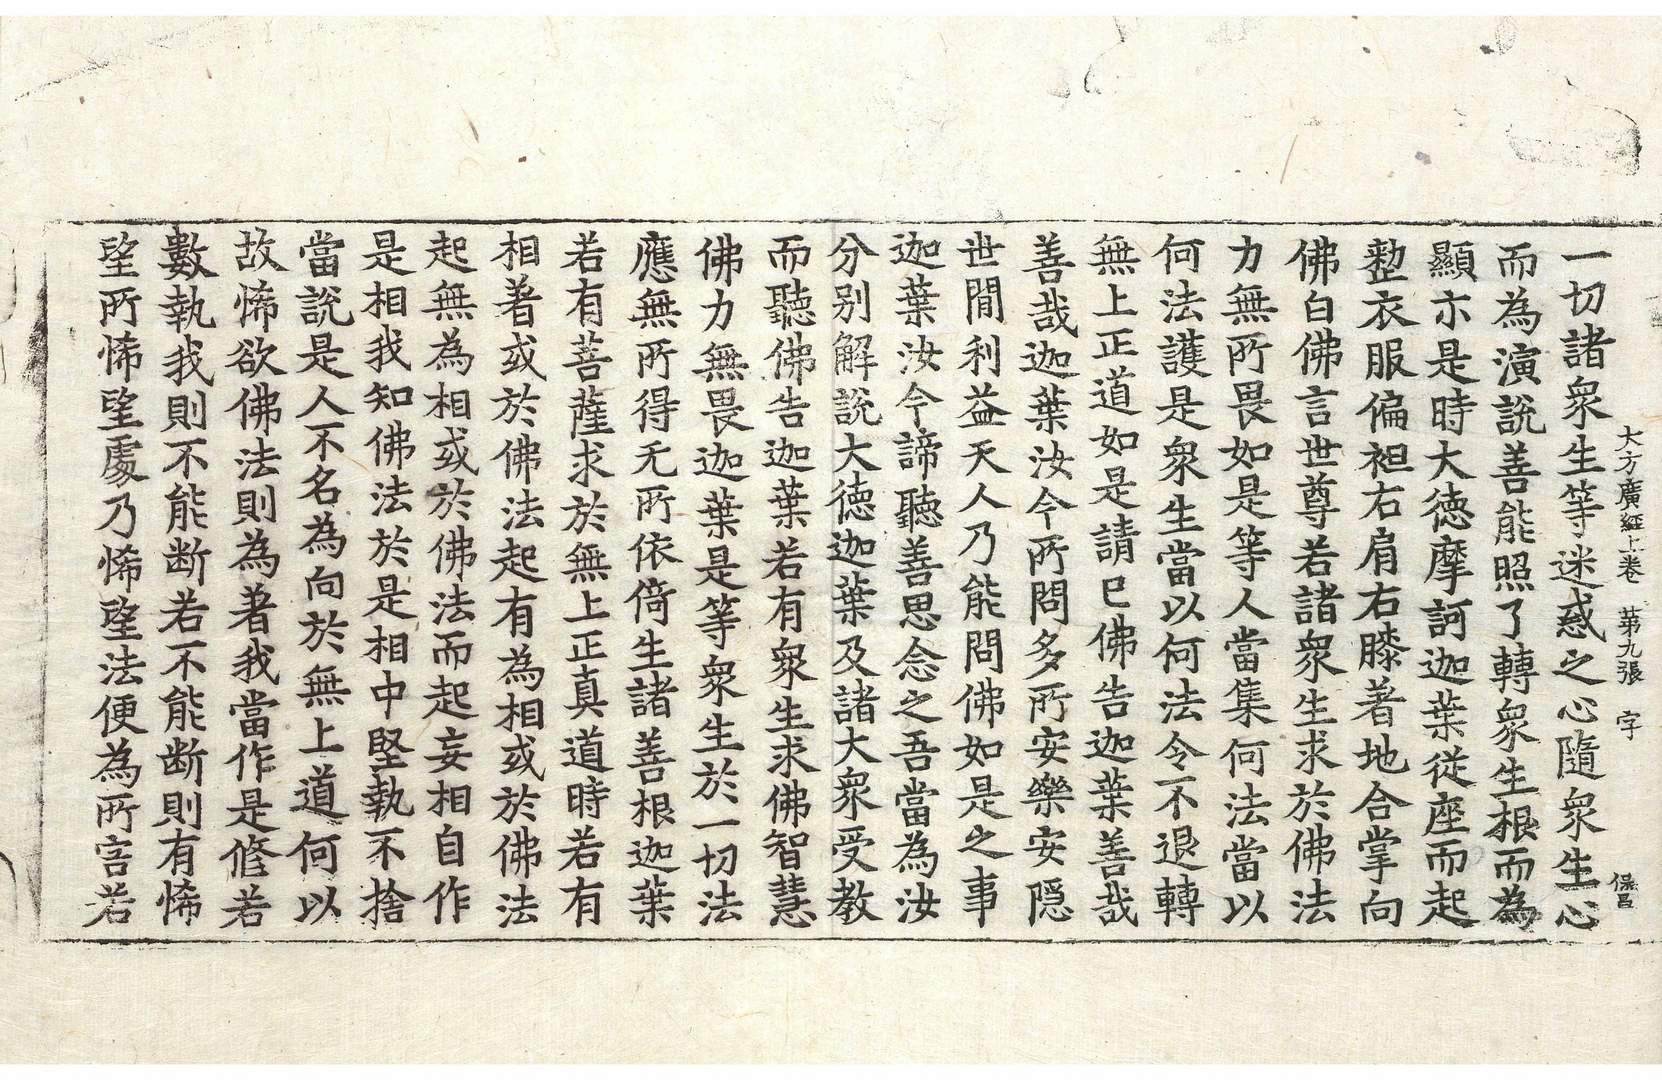 大方廣經上卷 苐九張 字
保昌
一切諸衆生等迷惑之心隨衆生心
而為演説善能照了轉衆生根而為
顯示是時大徳摩訶迦葉從座而起
整衣服偏袒右肩右膝著地合掌向
佛白佛言世尊若諸衆生求於佛法
力無所畏如是等人當集何法當以
何法護是衆生當以何法令不退轉
無上正道如是請已佛告迦葉善哉
善哉迦葉汝今所問多所安樂安隠
世間利益天人乃能問佛如是之事
迦葉汝今諦聽善思念之吾當為汝
分别解説大徳迦葉及諸大衆受教
而聽佛告迦葉若有衆生求佛智慧
佛力無畏迦葉是等衆生於一切法
應無所得无所依倚生諸善根迦葉
若有菩薩求於無上正真道時若有
相著或於佛法起有為相或於佛法
起無為相或於佛法而起妄相自作
是相我知佛法於是相中堅執不捨
當說是人不名為向於無上道何以
故悕欲佛法則為著我當作是修若
數執我則不能断若不能断則有悕
望所悕望處乃悕望法便為所害若